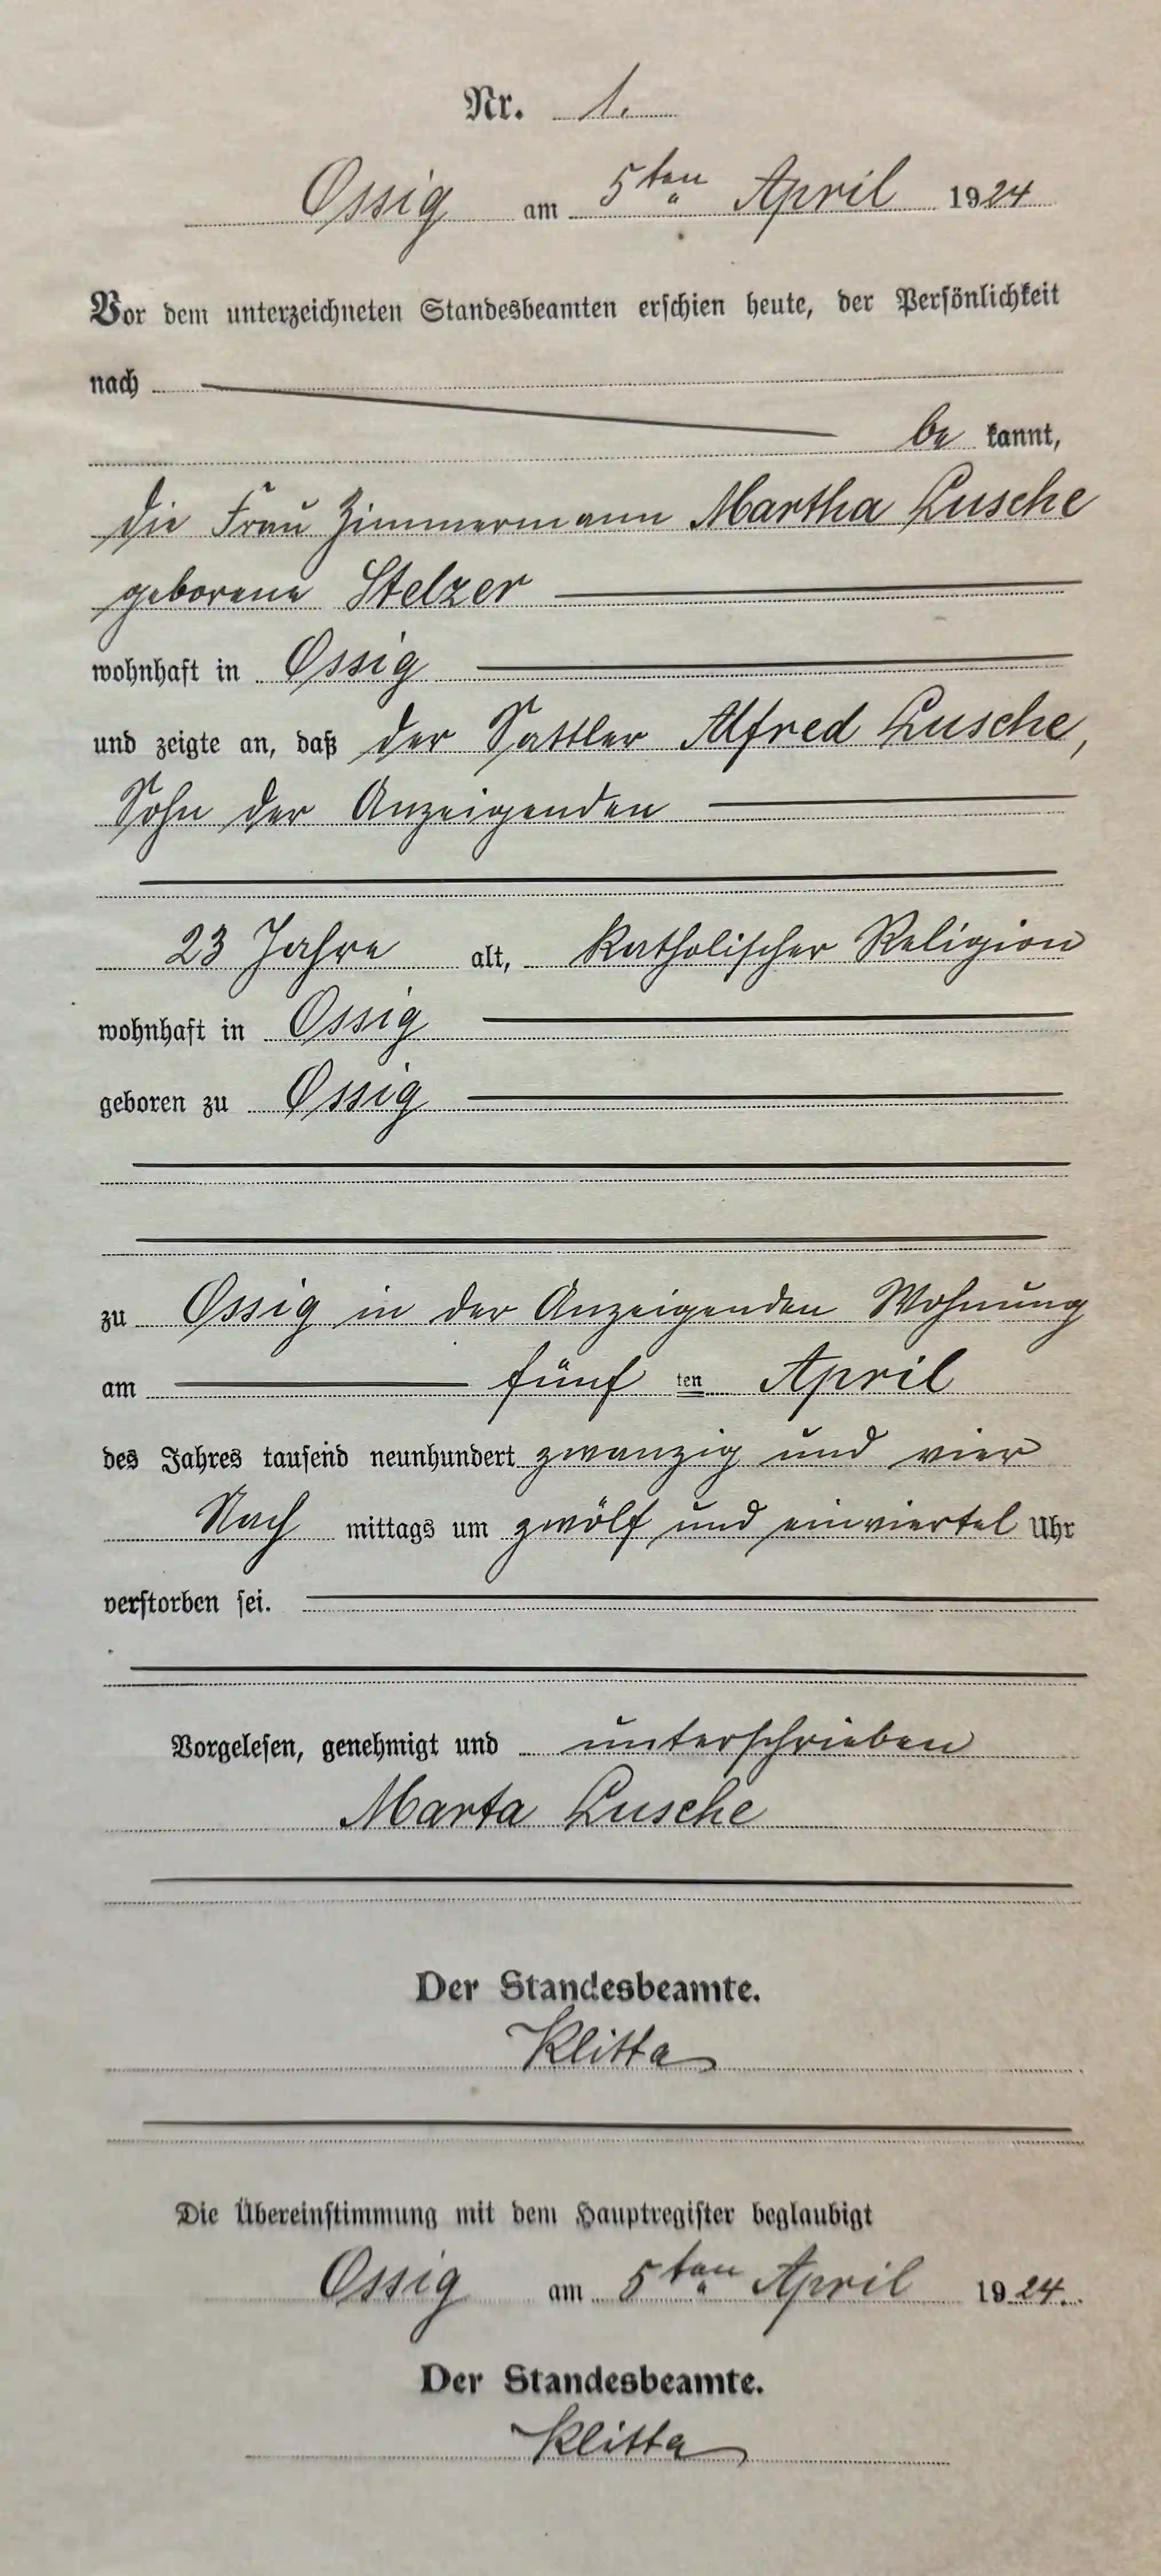 Nr. 1.
Ossig am 5ten April 1924
Vor dem unterzeichneten Standesbeamten erschien heute, der Persönlichkeit
nach
be kannt,
die Frau Zimmermann Martha Lusche
geborene Stelzer
wohnhaft in Ossig
und zeigte an, daß der Sattler Alfred Lusche,
Sohn der Anzeigenden
23 Jahre alt, katholischer Religion
wohnhaft in Ossig
geboren zu Ossig
zu Ossig in der Anzeigenden Wohnung
am fünf ten April
des Jahres tausend neunhundert zwanzig und vier
Nach mittags um zwölf und einviertel Uhr
verstorben sei.
Vorgelesen, genehmigt und unterschrieben
Marta Lusche
Der Standesbeamte.
Klitta
Die Übereinstimmung mit dem Hauptregister beglaubigt
Ossig am 5ten April 1924.
Der Standesbeamte.
Klitta